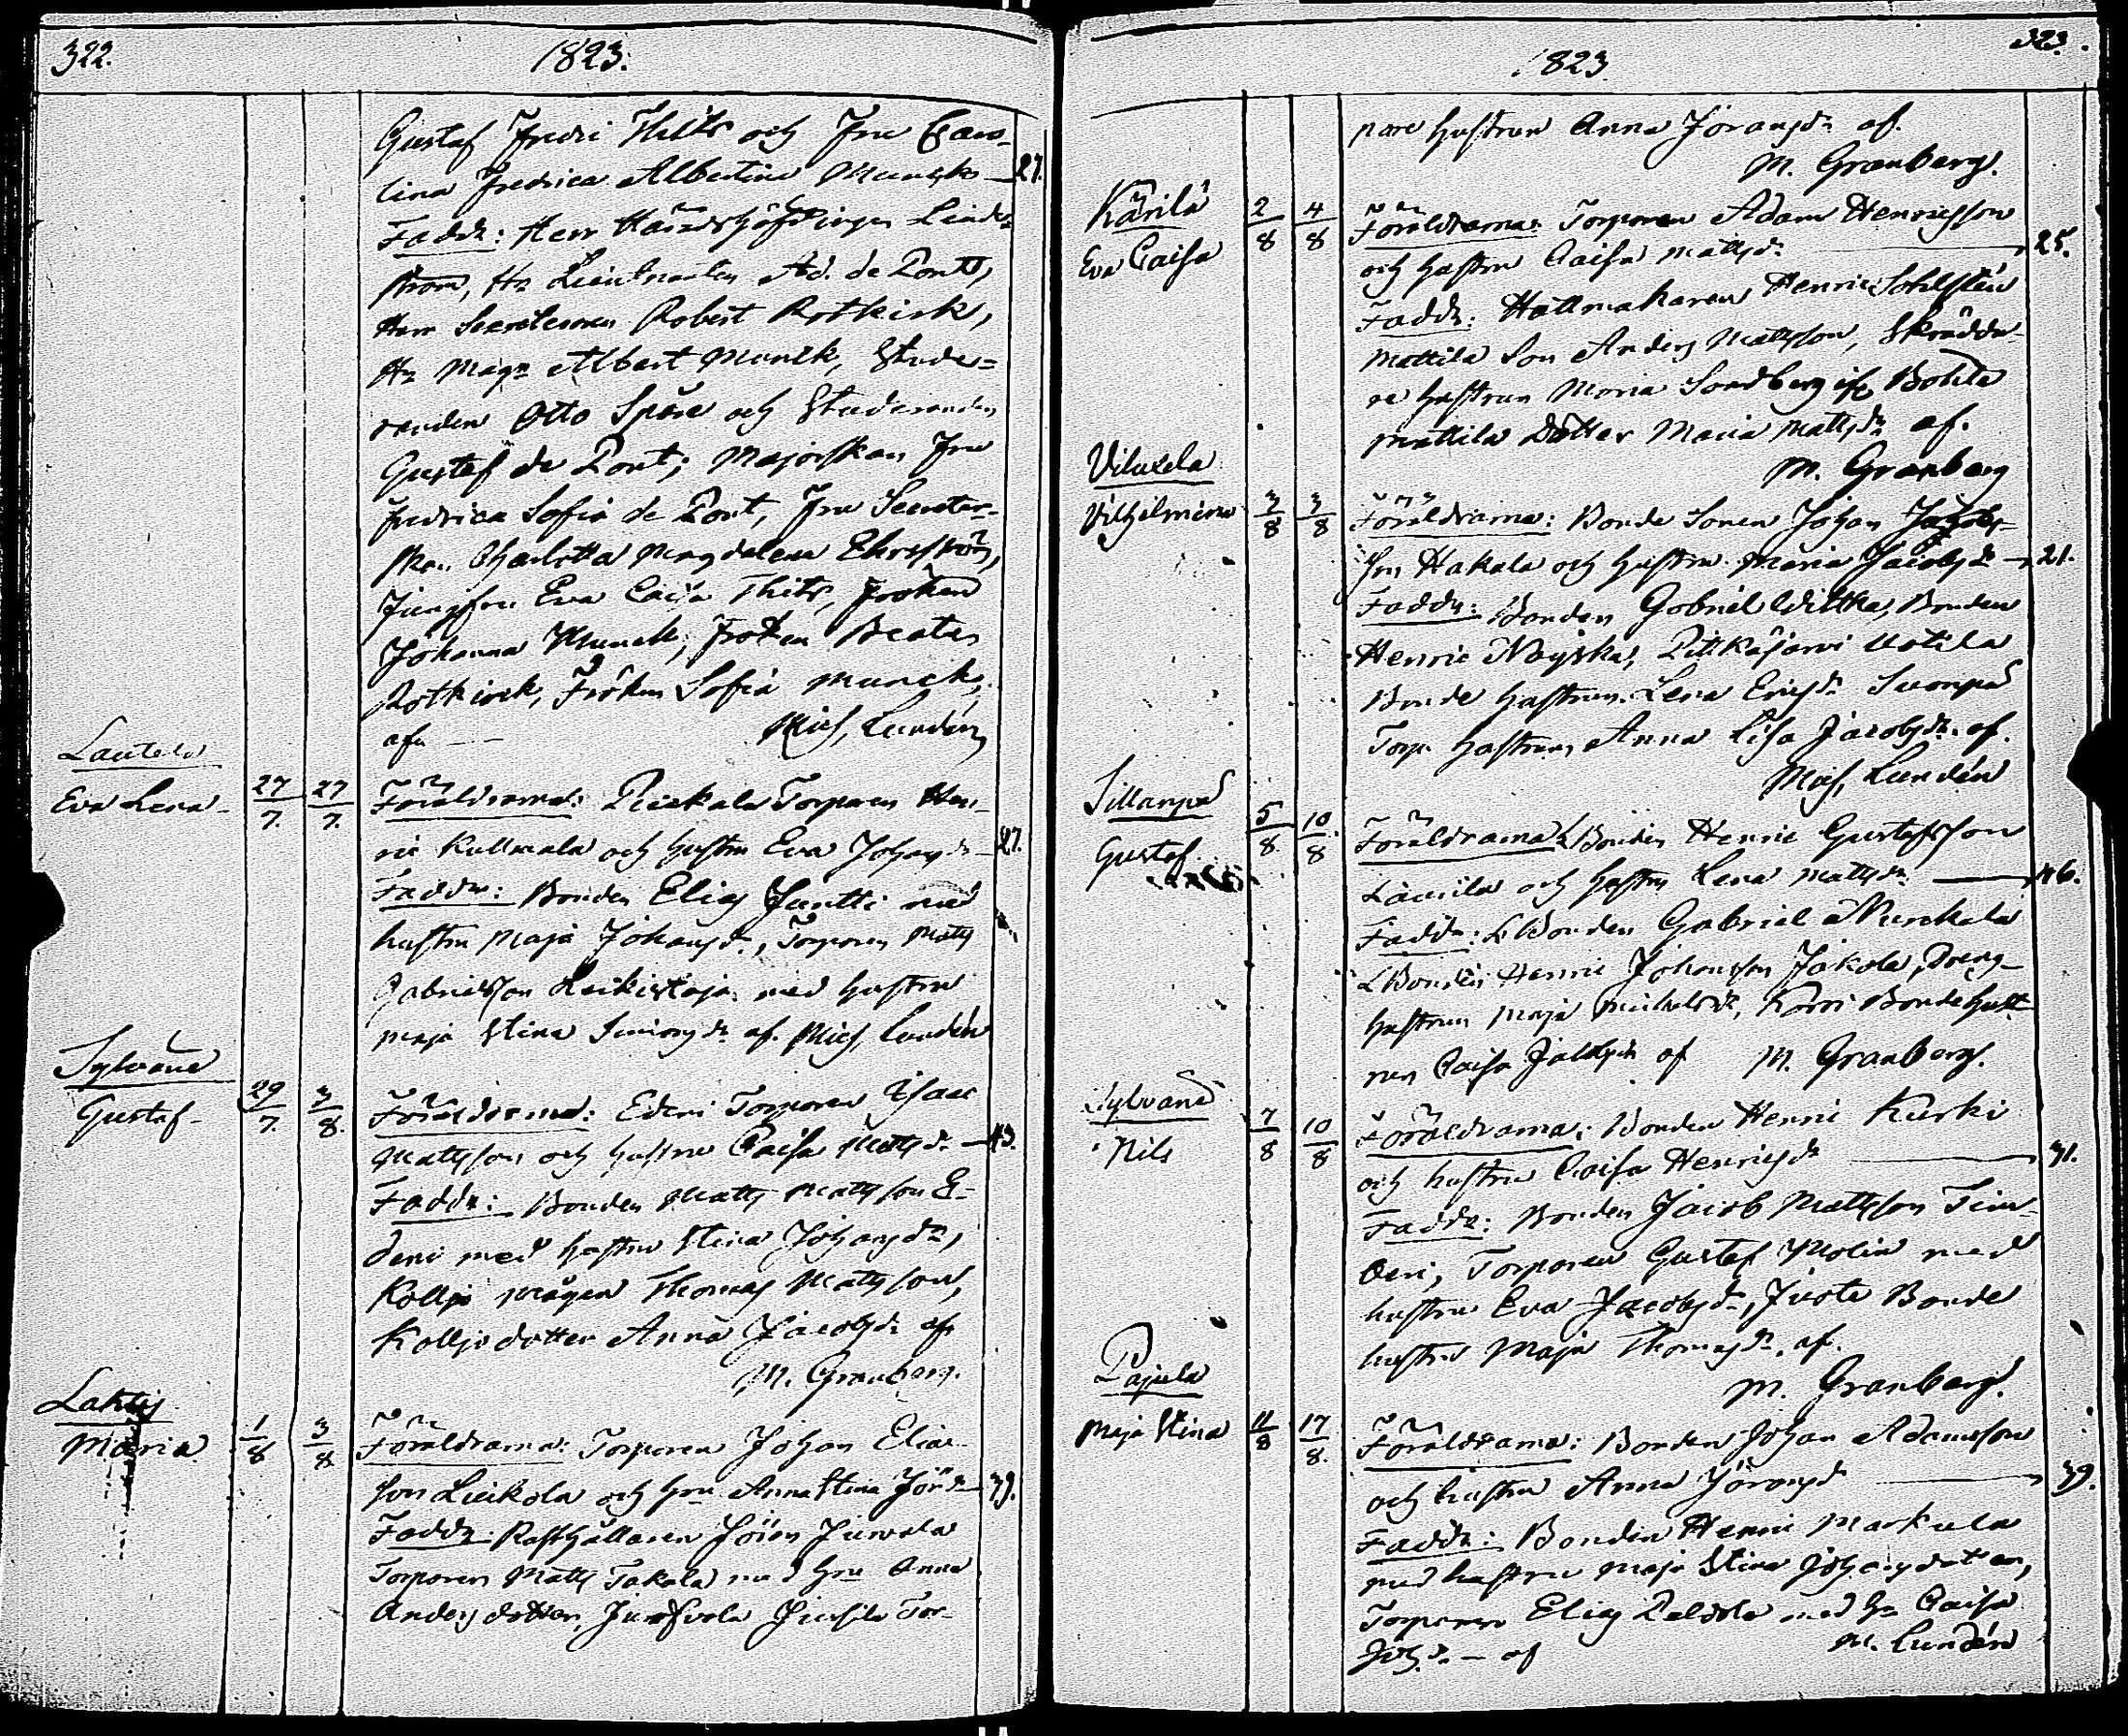 322.
1823.
Gustaf Fredri Thits och Fru Caro-
lina Fredrica Albertina Munck — 27.
Faddr: Herr Häradshöfdingen Lind-
ström, Hr Lieutnanten Ad. de Pont,
Herr Secreteraren Robert Rotkirk,
Hr Magr Albert Munck, Stude=
randen Otto Spåre och Studeranden
Gustaf de Pont; Majorskan Fru
Fredrica Sofia de Pont, Fru Secreter-
skan Charlotta Magdalena Ehrström,
Jungfru Eva Caisa Thits, Fröken
Johanna Munck, Fröken Beata
Rotkirck, Fröken Sofia Munck,
af Mich, Lundén
Lautela
Eva Lena 27/7. 27/7. Föräldrarna: Torparen Hen-
ric Kullmala och hustru Eva Johansdr — 27.
Faddr: Bonden Elias Juntti med
hustru Maja Johansdr, Torparen Matts
Gabrielsson med hustru
Maja Stina Simonsdr af. Mich, Lundén
Sylvänä
Gustaf 29/7. 3/8. Föräldrarna: Edeni Torparen Isaac
Mattsson och hustru Caisa Mattsdr — 43.
Faddr: Bonden Matts Mattsson E-
deni med hustru Stina Johansdr,
Kollja mågen Thomas Mattsson,
Kollja dotter Anna Jacobsdr af
M. Granberg.
Lahtis
Maria 1/8 3/8 Föräldrarna: Torparen Johan Elias-
son Leikola och hru Anna Stina Jördr — 39.
Faddr: Rusthållaren Jöran Juvvala
Torparen Matts Takala med hru Anna
Andersdotter, Jusila Tor-
323.
1823
pare hustrun Anna Jöransdr af.
M. Granberg.
Kärilä
Eva Caisa 2/8 4/8 Föräldrarna: Torparen Adam Henricsson
och hustru Caisa Mattsdr — 25.
Faddr: Hattmakaren Henric Sohlstén
Mattila Son Anders Mattsson, Skrädda-
re hustrun Maria Sandberg ifr. Bohle
Mattila Dotter Maria Mattsdr af.
M. Granberg
Viluxela
Vilhelmina 3/8 3/8 Föräldrarna: Bonde Sonen Johan Jacobs-
son Hakala och hustru Maria Jacobsdr — 21.
Faddr: Bonden Gabriel Wittka, Bonden
Henric Noyska, Pitkäjärvi Uotila
Bonde hustrun Lena Ericsdr Suonpä
Torp. hustrun Anna Lisa Jacobsdr. af.
Mich, Lundén
Sillanpä
Gustaf 5/8 10/8 Föräldrarna: LBonden Henric Gustafsson
Laurila och hustru Lena Mattsdr — 46.
Faddr: LBonden Gabriel Nurckala
LBonden Henric Johansson Jakola, Dreng-
hustrun Maja Michelsdr, Korri Bonde hust-
run Caisa Jacobsdr af M. Granberg.
Sylvänä
Nils 7/8 10/8 Föräldrarna: Bonden Henric Kurki
och hustru Caisa Henricsdr — 31.
Faddr: Bonden Jacob Mattsson Tim-
beri, Torparen Gustaf Molin med
hustru Eva Jacobsdr, Juote Bonde
hustru Maja Thomasdr. af.
M. Granberg.
Pajula
Maja Stina 11/8 17/8. Föräldrarna: Bonden Johan Adamsson
och hustru Anna Jöransdr — 39.
Faddr: Bonden Henric Markula
med hustru Maja Stina Johansdotter,
Torparen Elias Peldola med hr. Caisa
Joh.dr. — af M. Lundén